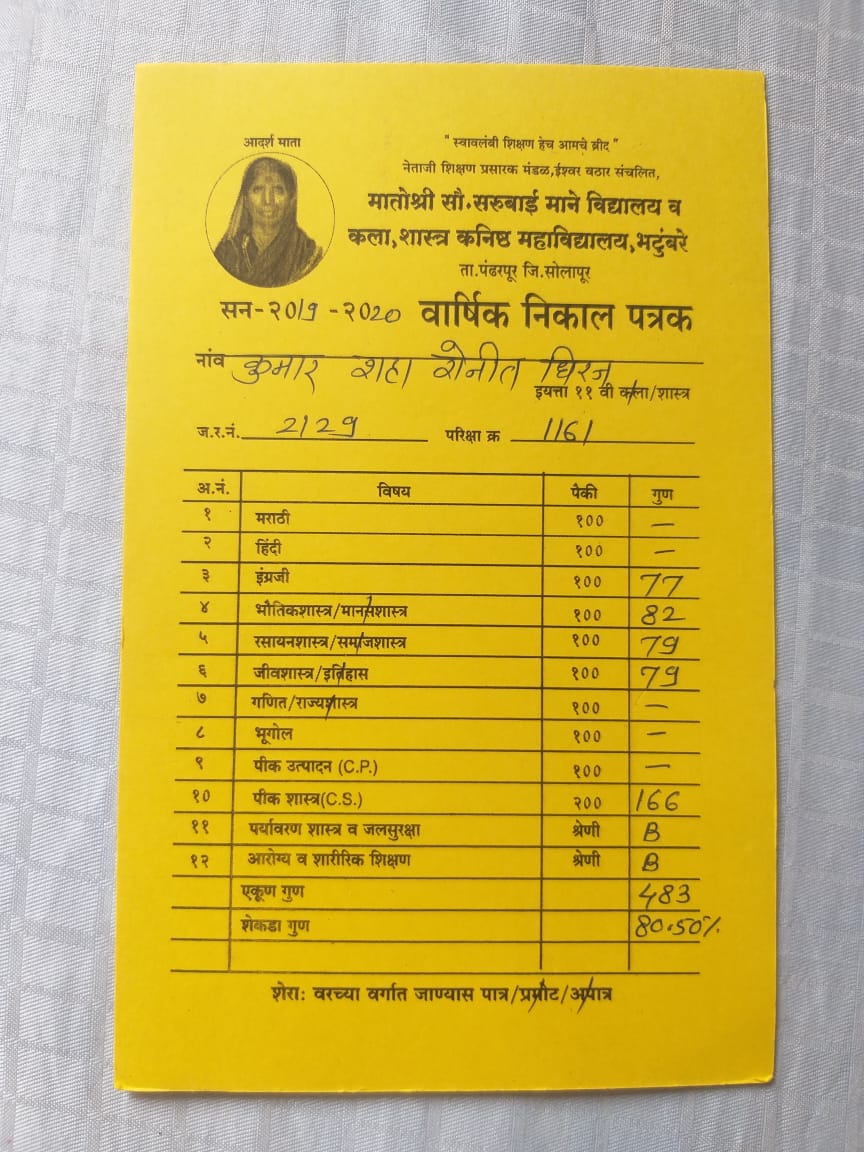 आदर्श माता
" स्वावलंबी शिक्षण हेच आमचे ब्रीद "
नेताजी शिक्षण प्रसारक मंडळ,ईश्वर वठार संचलित,
मातोश्री सौ.सरुबाई माने विद्यालय व
कला,शास्त्र कनिष्ठ महाविद्यालय,भटुंबरे
ता.पंढरपूर जि.सोलापूर
सन-२०19 -२०20 वार्षिक निकाल पत्रक
नांव कुमार शहा रोनीत धिरज
इयत्ता ११ वी कला/शास्त्र
ज.र.नं. 2129 परिक्षा क्र 1161
अ.नं. विषय पैकी गुण
१ मराठी १०० —
२ हिंदी १०० —
३ इंग्रजी १०० 77
४ भौतिकशास्त्र/मानसशास्त्र १०० 82
५ रसायनशास्त्र/समाजशास्त्र १०० 79
६ जीवशास्त्र/इतिहास १०० 79
७ गणित/राज्यशास्त्र १०० —
८ भूगोल १०० —
९ पीक उत्पादन (C.P.) १०० —
१० पीक शास्त्र(C.S.) २०० 166
११ पर्यावरण शास्त्र व जलसुरक्षा श्रेणी B
१२ आरोग्य व शारीरिक शिक्षण श्रेणी B
एकूण गुण 483
शेकडा गुण 80.50%
शेरा: वरच्या वर्गात जाण्यास पात्र/प्रमोट/अपात्र